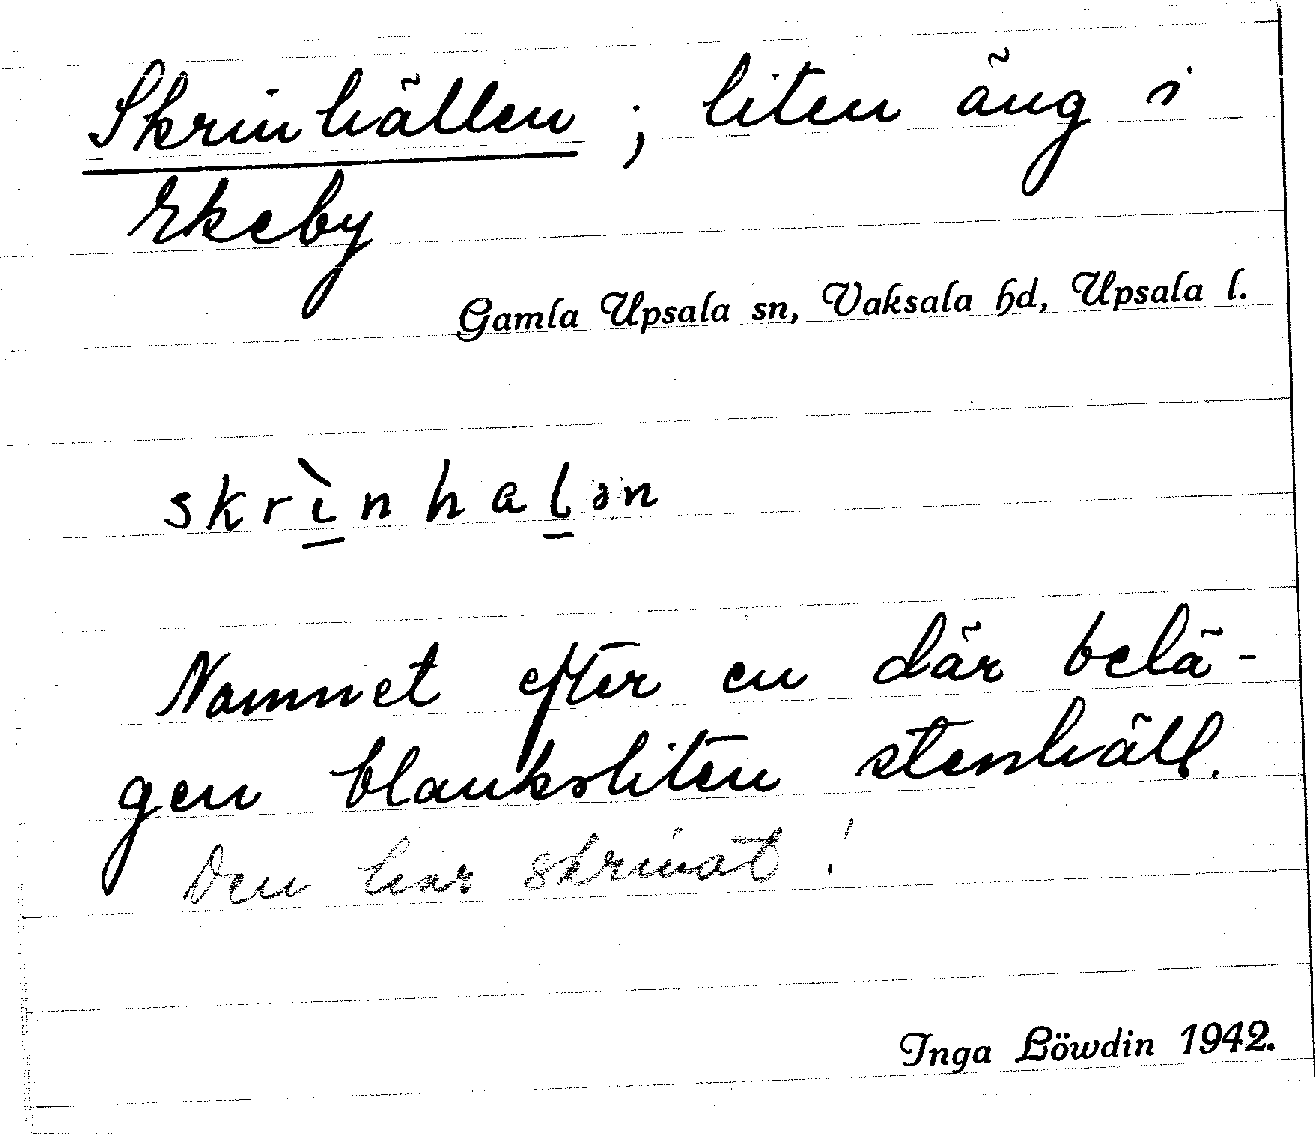 Skrinhällen ; liten äng i
Ekeby
Gamla Upsala sn, Vaksala hd, Upsala l.
skrı̀nhalən
Namnet efter en där belä-
gen blanksliten stenhäll.
Den har skrinat !
Inga Löwdin 1942.